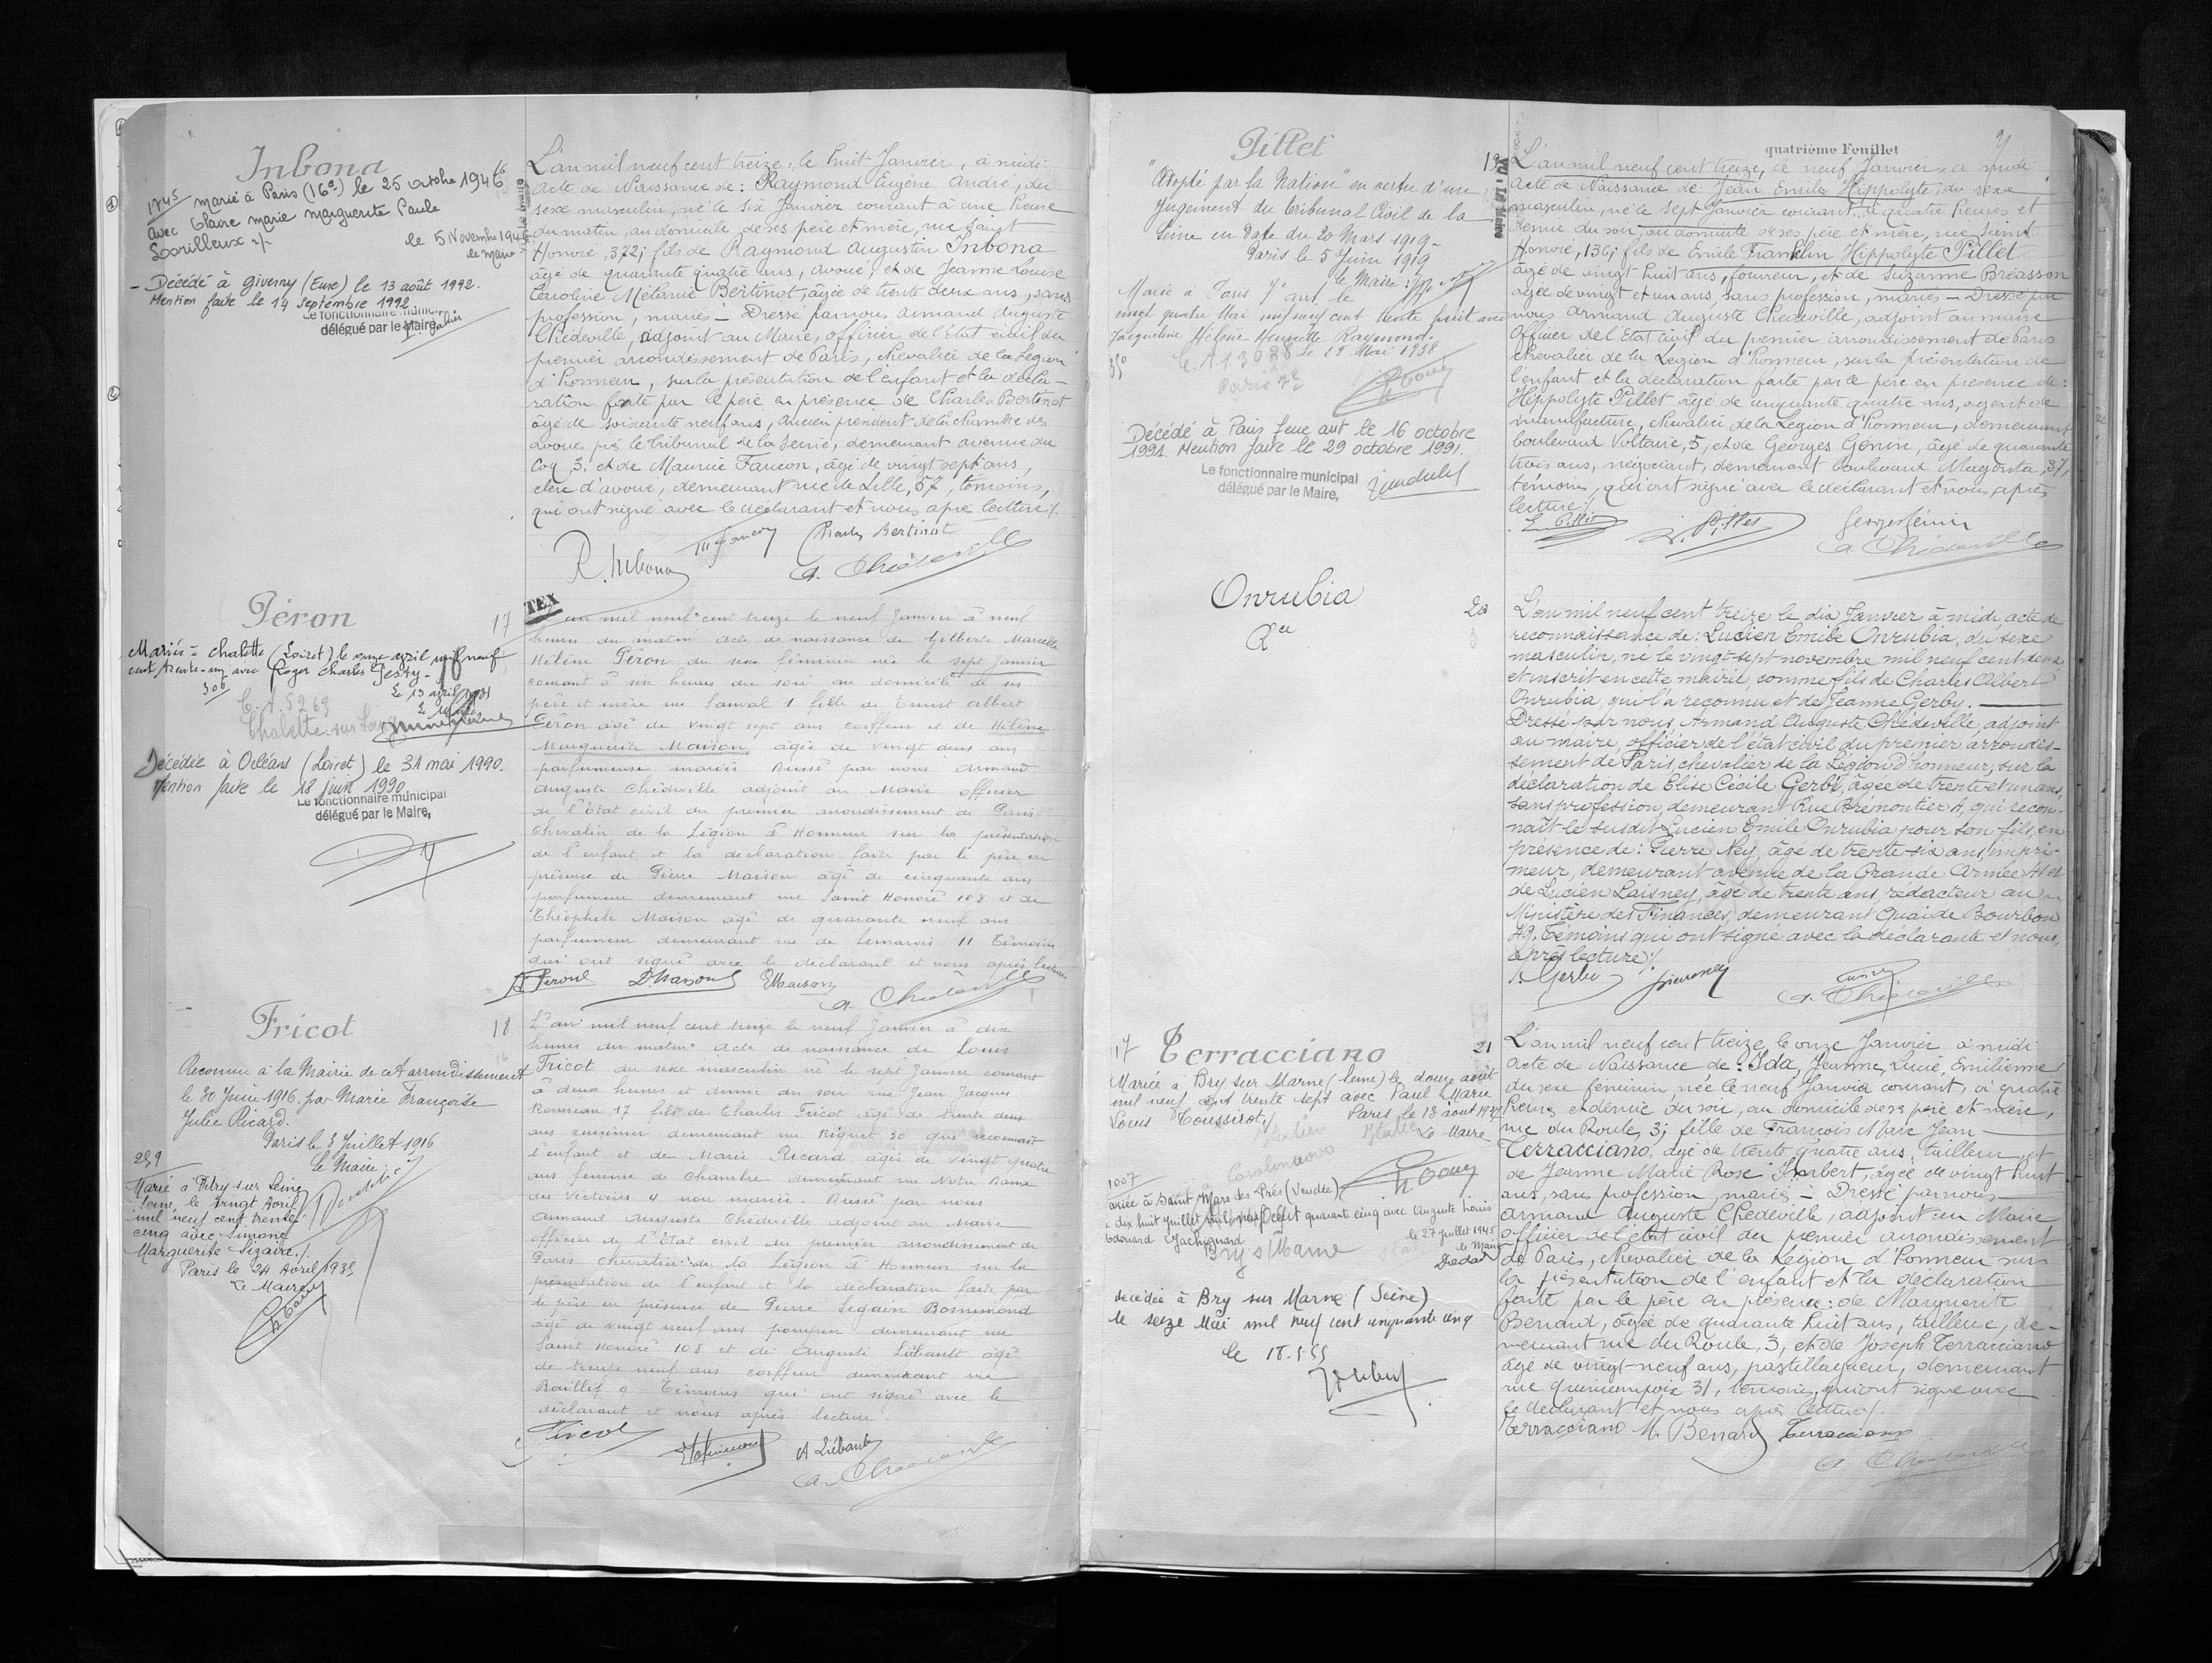 Inbona
1745 marié à Paris (16e) le 25 octobre 1946
avec Claire Marie Marguerite Paule
Lorilleux
le 5 Novembre 1946
le Maire
- Décédé à Giverny (Eure) le 13 août 1992.
Mention faite le 14 septembre 1992
Le fonctionnaire municipal
délégué par le Maire,
16
L'an mil neuf cent treize, le huit Janvier, à midi
acte de Naissance de: Raymond Eugène André, du
sexe masculin, né le six Janvier courant à une heure
du matin, au domicile de ses père et mère, rue Saint
Honoré, 372; fils de Raymond Augustin Inbona
âgé de quarante quatre ans, avoué, et de Jeanne Louise
Caroline Mélanie Bertinot, âgée de trente deux ans, sans
profession, mariés - Dressé par nous Armand Auguste
Chédeville, adjoint au Maire, officier de l'Etat civil du
premier arrondissement de Paris, chevalier de la Légion
d'honneur, sur la présentation de l'enfant et la décla-
ration faite par le père en présence de Charles Bertinot
âgé de soixante neuf ans, ancien président de la chambre des
avoués près le tribunal de la Seine, demeurant avenue du
Coq, 3, et de Maurice Faucon, âgé de vingt sept ans,
clerc d'avoué, demeurant rue de Lille, 57, témoins,
qui ont signé avec le déclarant et nous après lecture ./.
R. Inbona M Faucon Charles Bertinot
A. Chédeville
Péron
Mariée à Chalette (Loiret) le onze avril mil neuf
cent trente-un avec Roger Charles
Le 13 avril 1931
Le Maire
C. A. 5269
Chalette-sur-Loing
Décédée à Orléans (Loiret) le 31 mai 1990.
Mention faite le 18 juin 1990
Le fonctionnaire municipal
délégué par le Maire,
17
TEX
L'an mil neuf cent treize le neuf Janvier à neuf
heures du matin acte de naissance de Gilberte Marcelle
Hélène Péron du sexe féminin née le sept Janvier
courant à six heures du soir au domicile de ses
père et mère rue Sauval 1 fille de Ernest Albert
Péron âgé de vingt sept ans coiffeur et de Hélène
Marguerite Maison âgée de vingt deux ans
parfumeuse mariés Dressé par nous Armand
Auguste Chédeville adjoint au Maire officier
de l'Etat civil du premier arrondissement de Paris
Chevalier de la Légion d'Honneur sur la présentation
de l'enfant et la déclaration faite par le père en
présence de Pierre Maison âgé de cinquante ans
parfumeur demeurant rue Saint Honoré 108 et de
Théophile Maison âgé de quarante neuf ans
parfumeur demeurant rue de 11 Témoins
qui ont signé avec le déclarant et nous après lecture
Peron Maison
A. Chédeville
Fricot
Reconnu à la Mairie de cet arrondissement
le 30 Juin 1916, par Marie Françoise
Julie Ricard.
Paris le 3 Juillet 1916
Le Maire
Marié à Vitry sur Seine
Seine, le vingt Avril
mil neuf cent trente
cinq avec Simone
Marguerite Sizaire ./.
Paris le 24 Avril 1935
Le Maire
18
L'an mil neuf cent treize le neuf Janvier à dix
heures du matin acte de naissance de Louis
Fricot du sexe masculin né le sept Janvier courant
à deux heures et demie du soir rue Jean Jacques
Rousseau 17 fils de Charles Fricot âgé de trente deux
ans cuisinier demeurant rue Riquet 30 qui reconnait
l'enfant et de Marie Ricard âgée de vingt quatre
ans femme de chambre demeurant rue Notre Dame
des Victoires 4 non mariés. Dressé par nous
Armand Auguste Chédeville adjoint au Maire
officier de l'Etat civil du premier arrondissement de
Paris chevalier de la Légion d'Honneur sur la
présentation de l'enfant et la déclaration faite par
le père en présence de Pierre
âgé de vingt neuf ans pompier demeurant rue
Saint Honoré 108 et de Auguste Liébault âgé
de trente neuf ans coiffeur demeurant rue
Baillif 9 Témoins qui ont signé avec le
déclarant et nous après lecture.
Fricot A Liébault
A. Chédeville
quatrième Feuillet
4
Pillet
"Adopté par la Nation" en vertu d'un
jugement du tribunal Civil de la
Seine en date du 20 Mars 1919-
Paris le 5 Juin 1919
le Maire:
Marié à Paris 7e arrt. le
vingt quatre Mai mil neuf cent trente huit avec
Jacqueline Hélène Henriette Raymond.
Le 28 Mai 1938
Paris 7e
Décédé à Paris 1er arrt le 16 octobre
1991. Mention faite le 29 octobre 1991.
Le fonctionnaire municipal
délégué par le Maire,
19
L'an mil neuf cent treize, le neuf Janvier, à midi
acte de Naissance de: Jean Emile Hippolyte, du sexe
masculin, né le sept Janvier courant, à quatre heures et
demie du soir, au domicile de ses père et mère, rue Saint
Honoré, 136; fils de Emile Franklin Hippolyte Pillet
âgé de vingt huit ans, fourreur, et de Suzanne Bréasson
âgée de vingt et un ans, sans profession, mariés - Dressé par
nous Armand Auguste Chédeville, adjoint au maire
Officier de l'Etat civil du premier arrondissement de Paris
chevalier de la Légion d'honneur, sur la présentation de
l'enfant et la déclaration faite par le père en présence de:
Hippolyte Pillet âgé de cinquante quatre ans, agent de
manufacture, chevalier de la Légion d'honneur, demeurant
boulevard Voltaire, 5, et de Georges Genin, âgé de quarante
trois ans, négociant, demeurant boulevard Magenta, 37,
témoins, qui ont signé avec le déclarant et nous après
lecture ./.
E. Pillet H. Pillet Georges Genin
A. Chédeville
Onrubia
Rce
20
L'an mil neuf cent treize le dix Janvier à midi, acte de
reconnaissance de: Lucien Emile Onrubia, du sexe
masculin, né le vingt-sept novembre mil neuf cent deux
et inscrit en cette mairie, comme fils de Charles Albert
Onrubia, qui l'a reconnu et de Jeanne Gerby.
Dressé par nous, Armand Auguste Chédeville, adjoint
au maire, officier de l'état civil du premier arrondis-
sement de Paris chevalier de la Légion d'honneur, sur la
déclaration de Elise Cécile Gerbi, âgée de trente et un ans,
sans profession, demeurant Rue Brémontier 4, qui recon-
naît le susdit Lucien Emile Onrubia pour son fils, en
présence de: Pierre Ney, âgé de trente-six ans, impri-
meur, demeurant avenue de la Grande Armée et
de Lucien Laisney, âgé de trente ans, rédacteur au
Ministère des Finances, demeurant Quai de Bourbon
49. Témoins qui ont signé avec la déclarante et nous,
après lecture ./.
Gerbi
A. Chédeville
17 Terracciano
Mariée à Bry sur Marne (Seine) le douze août
mil neuf cent trente sept avec Paul Marie
Louis Toussirot ./.
Paris le 18 août 1937
Le Maire
1007
Mariée à Saint Mars des Prés (Vendée)
le dix huit juillet mil neuf cent quarante cinq avec Auguste Louis
Edouard
le 27 juillet 1945
le Maire
Bry s/ Marne
décédée à Bry sur Marne (Seine)
le seize Mai mil neuf cent cinquante cinq
le 18.5.55
21
L'an mil neuf cent treize, le onze Janvier à midi
acte de Naissance de: Ida, Jeanne, Lucie, Emilienne
du sexe féminin, née le neuf Janvier courant, à quatre
heures et demie du soir, au domicile de ses père et mère,
rue du Roule, 3; fille de François Marc Jean
Terracciano, âgé de trente quatre ans, tailleur, et
de Jeanne Marie Rose Isarbert, âgée de vingt huit
ans, sans profession, mariés - Dressé par nous
Armand Auguste Chédeville, adjoint au Maire
officier de l'état civil du premier arrondissement
de Paris, chevalier de la Légion d'honneur sur
la présentation de l'enfant et la déclaration
faite par le père en présence: de Marguerite
Benard, âgée de quarante huit ans, tailleuse, de-
meurant rue du Roule, 3, et de Joseph Terracciano
âgé de vingt-neuf ans, pastillageur, demeurant
rue Quincampoix 31, témoins, qui ont signé avec
le déclarant et nous après lecture ./.
Terracciano M. Benard Terracciano
A. Chédeville